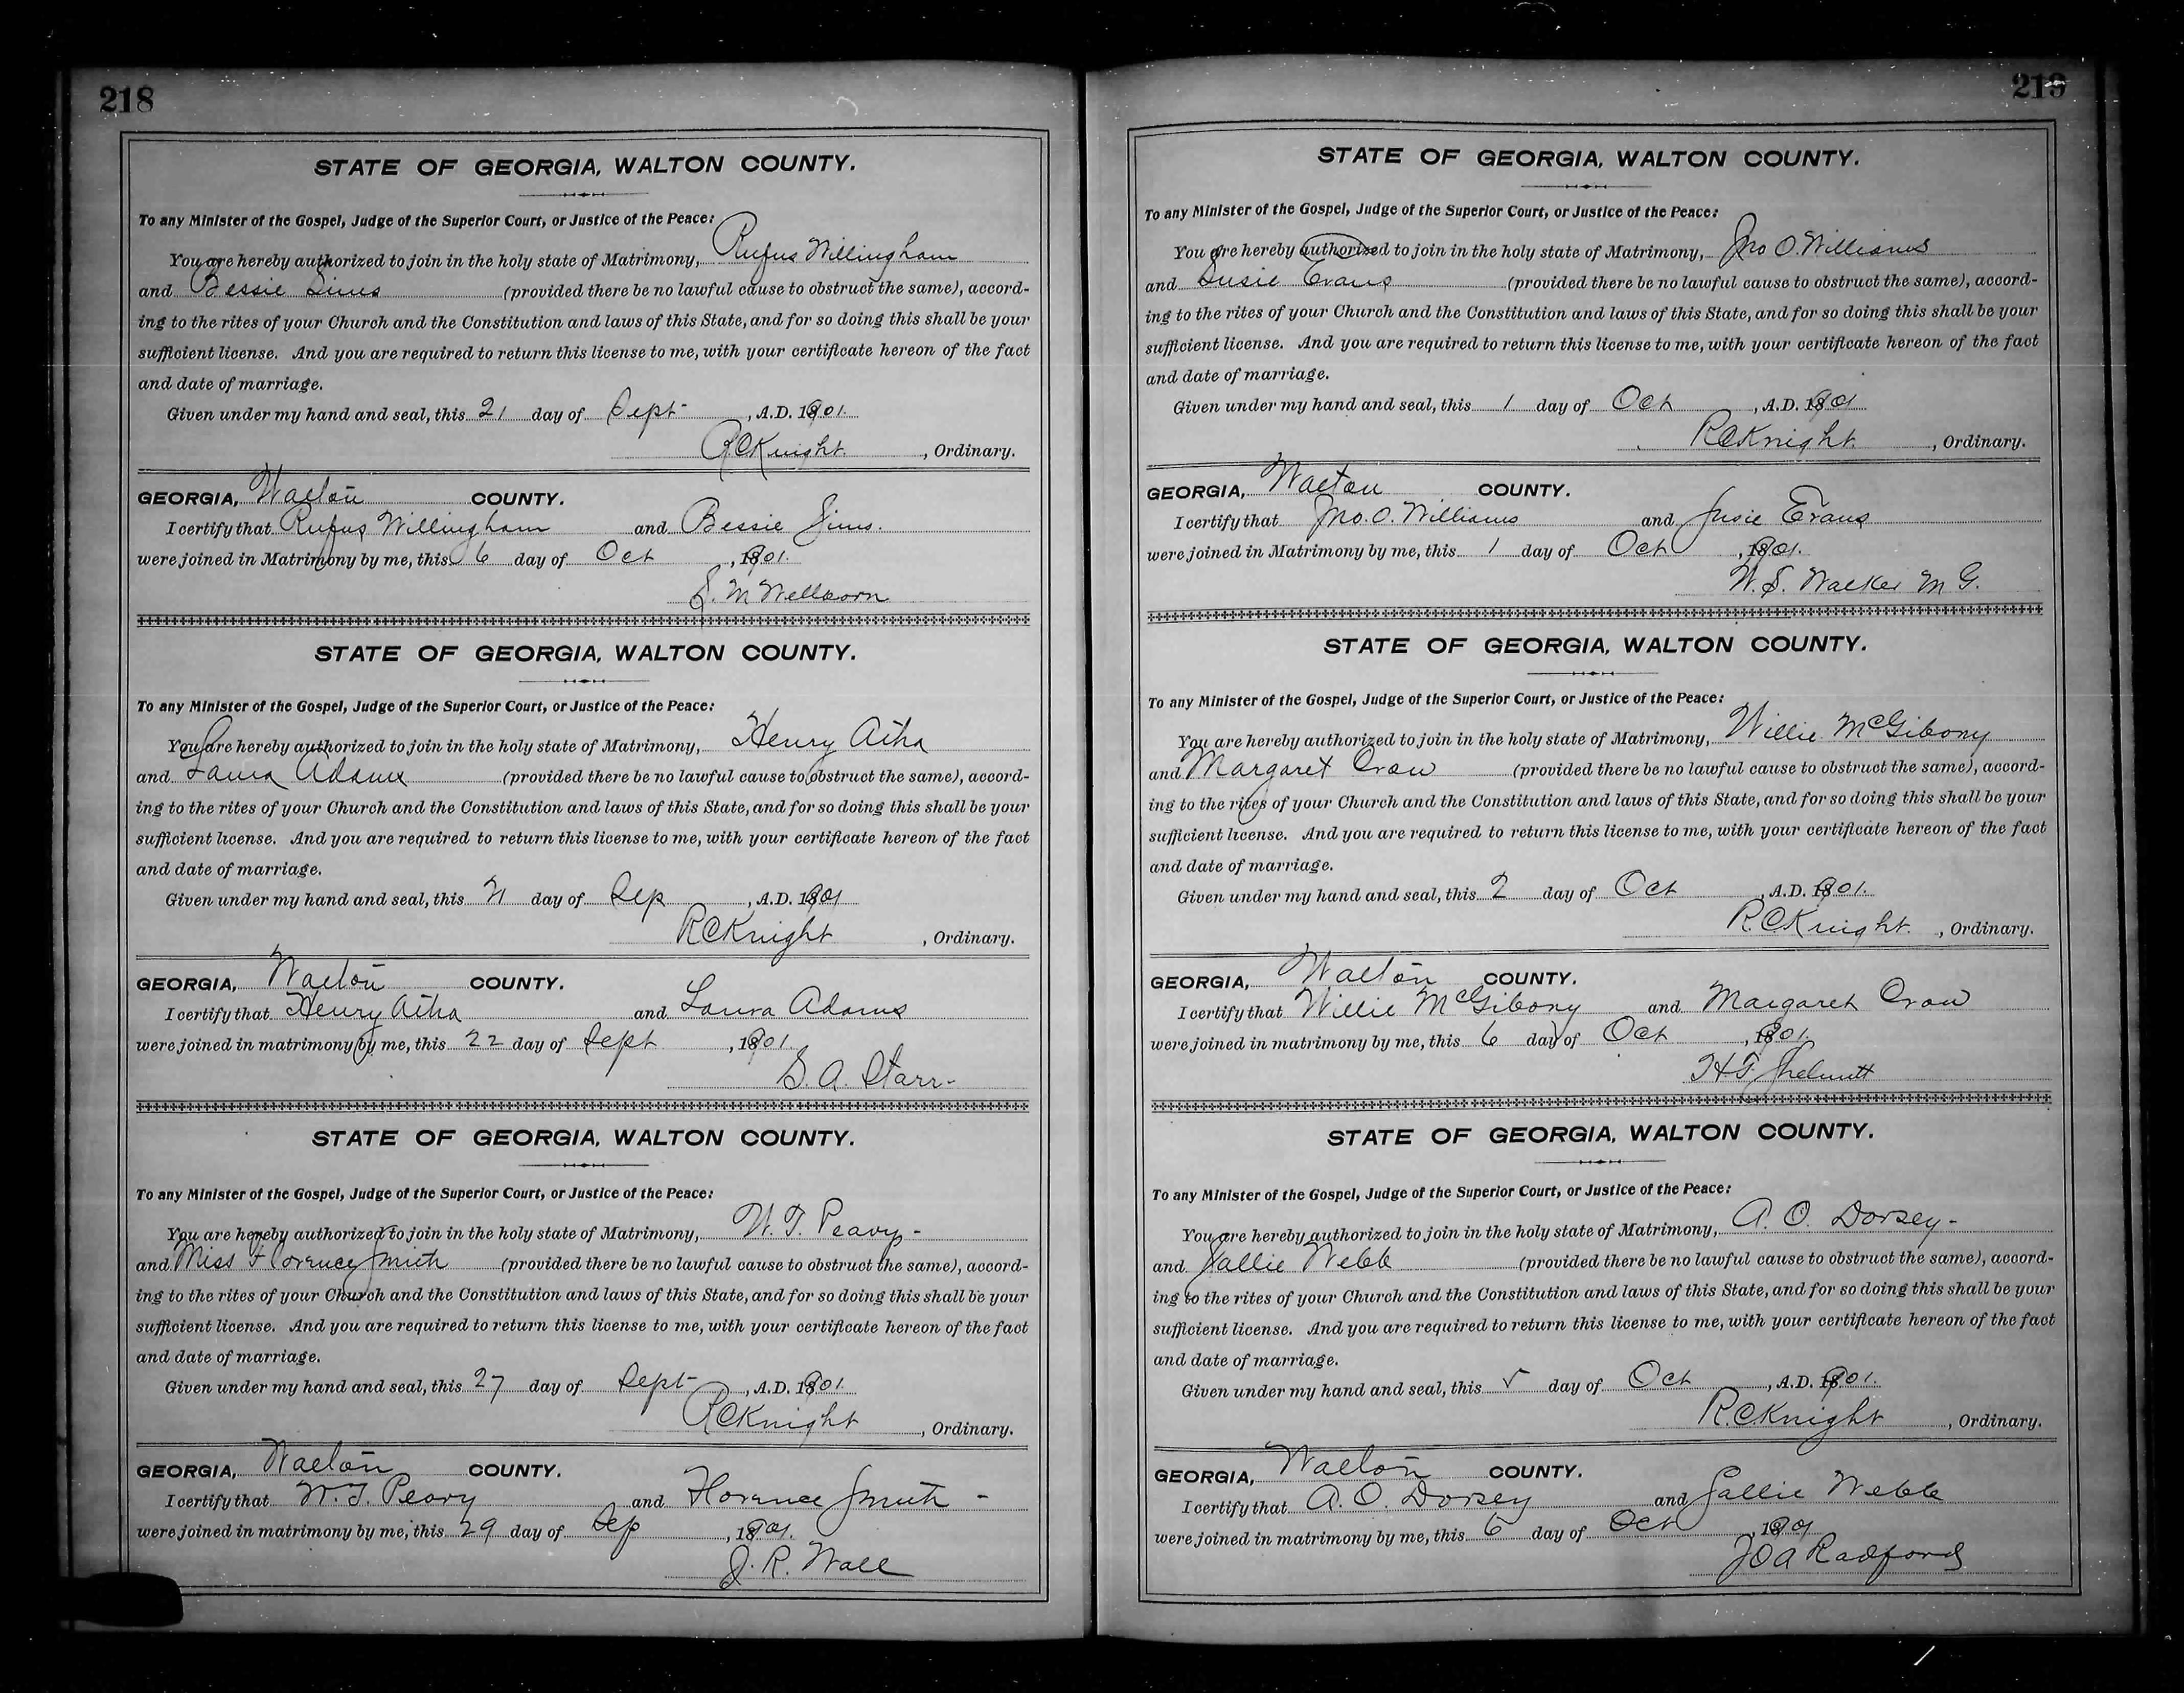 218
STATE OF GEORGIA, WALTON COUNTY.
To any Minister of the Gospel, Judge of the Superior Court, or Justice of the Peace:
You are hereby authorized to join in the holy state of Matrimony, Rufus Willingham
and Bessie Sims (provided there be no lawful cause to obstruct the same), accord-
ing to the rites of your Church and the Constitution and laws of this State, and for so doing this shall be your
sufficient license. And you are required to return this license to me, with your certificate hereon of the fact
and date of marriage.
Given under my hand and seal, this 21 day of Sept , A.D. 1901.
R.C. Knight , Ordinary.
GEORGIA, Walton COUNTY.
I certify that Rufus Willingham and Bessie Sims.
were joined in Matrimony by me, this 6 day of Oct , 1901.
S. M Wellborn
STATE OF GEORGIA, WALTON COUNTY.
To any Minister of the Gospel, Judge of the Superior Court, or Justice of the Peace:
You are hereby authorized to join in the holy state of Matrimony, Henry
and Laura Adams (provided there be no lawful cause to obstruct the same), accord-
ing to the rites of your Church and the Constitution and laws of this State, and for so doing this shall be your
sufficient license. And you are required to return this license to me, with your certificate hereon of the fact
and date of marriage.
Given under my hand and seal, this 21 day of Sep , A.D. 1901
R C Knight , Ordinary.
GEORGIA, Walton COUNTY.
I certify that Henry and Laura Adams
were joined in matrimony by me, this 22 day of Sept , 1901.
S. A. Starr-
STATE OF GEORGIA, WALTON COUNTY.
To any Minister of the Gospel, Judge of the Superior Court, or Justice of the Peace:
You are hereby authorized to join in the holy state of Matrimony, W. T. Peavy -
and Miss Florence Smith (provided there be no lawful cause to obstruct the same), accord-
ing to the rites of your Church and the Constitution and laws of this State, and for so doing this shall be your
sufficient license. And you are required to return this license to me, with your certificate hereon of the fact
and date of marriage.
Given under my hand and seal, this 27 day of Sept , A.D. 1901.
R C Knight , Ordinary.
GEORGIA, Walton COUNTY.
I certify that W. T. Peavy and Florence Smith -
were joined in matrimony by me, this 29 day of Sep , 1901.
J. R. Wall
219
STATE OF GEORGIA, WALTON COUNTY.
To any Minister of the Gospel, Judge of the Superior Court, or Justice of the Peace:
You are hereby authorized to join in the holy state of Matrimony, Jno O. Williams
and Susie Evans (provided there be no lawful cause to obstruct the same), accord-
ing to the rites of your Church and the Constitution and laws of this State, and for so doing this shall be your
sufficient license. And you are required to return this license to me, with your certificate hereon of the fact
and date of marriage.
Given under my hand and seal, this 1 day of Oct , A.D. 1901
R C Knight , Ordinary.
GEORGIA, Walton COUNTY.
I certify that Jno. O. Williams and Susie Evans
were joined in Matrimony by me, this 1 day of Oct , 1901.
W. S. Walker M G.
STATE OF GEORGIA, WALTON COUNTY.
To any Minister of the Gospel, Judge of the Superior Court, or Justice of the Peace:
You are hereby authorized to join in the holy state of Matrimony, Willie McGibony
and Margaret Crow (provided there be no lawful cause to obstruct the same), accord-
ing to the rites of your Church and the Constitution and laws of this State, and for so doing this shall be your
sufficient license. And you are required to return this license to me, with your certificate hereon of the fact
and date of marriage.
Given under my hand and seal, this 2 day of Oct , A.D. 1901.
R. C Knight. , Ordinary.
GEORGIA, Walton COUNTY.
I certify that Willie McGibony and Margaret Crow
were joined in matrimony by me, this 6 day of Oct , 1901.
H. T. Shelnutt
STATE OF GEORGIA, WALTON COUNTY.
To any Minister of the Gospel, Judge of the Superior Court, or Justice of the Peace:
You are hereby authorized to join in the holy state of Matrimony, A. O. Dorsey -
and Sallie Webb (provided there be no lawful cause to obstruct the same), accord-
ing to the rites of your Church and the Constitution and laws of this State, and for so doing this shall be your
sufficient license. And you are required to return this license to me, with your certificate hereon of the fact
and date of marriage.
Given under my hand and seal, this 5 day of Oct , A.D. 1901.
R. C. Knight , Ordinary.
GEORGIA, Walton COUNTY.
I certify that A. O. Dorsey and Sallie Webb
were joined in matrimony by me, this 6 day of Oct , 1901
J O A Radford